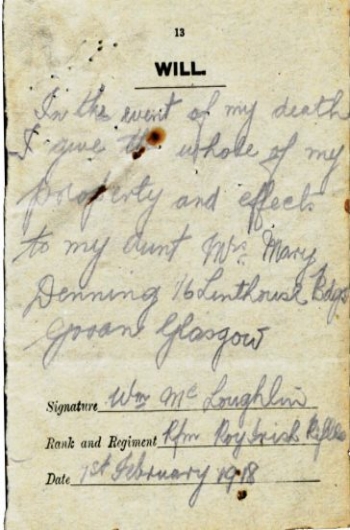 13
WILL.
In the event of my death
I give the whole of my
property and effects
to my aunt Mrs. Mary
Denning 16 Linthouse Bdgs
Govan Glasgow
Signature Wm Mc Loughlin
Rank and Regiment Rfm Roy Irish Rifles
Date 1st February 1918